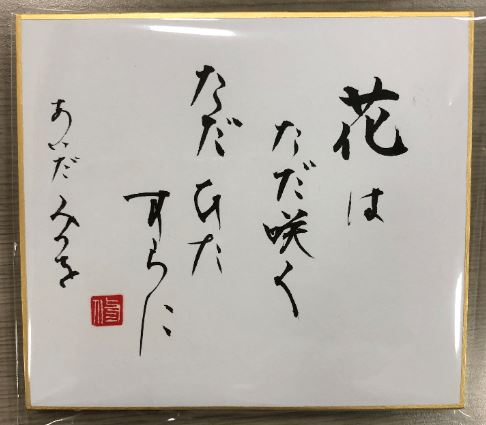 花は
ただ咲く
ただひた
すらに
あいだみつを